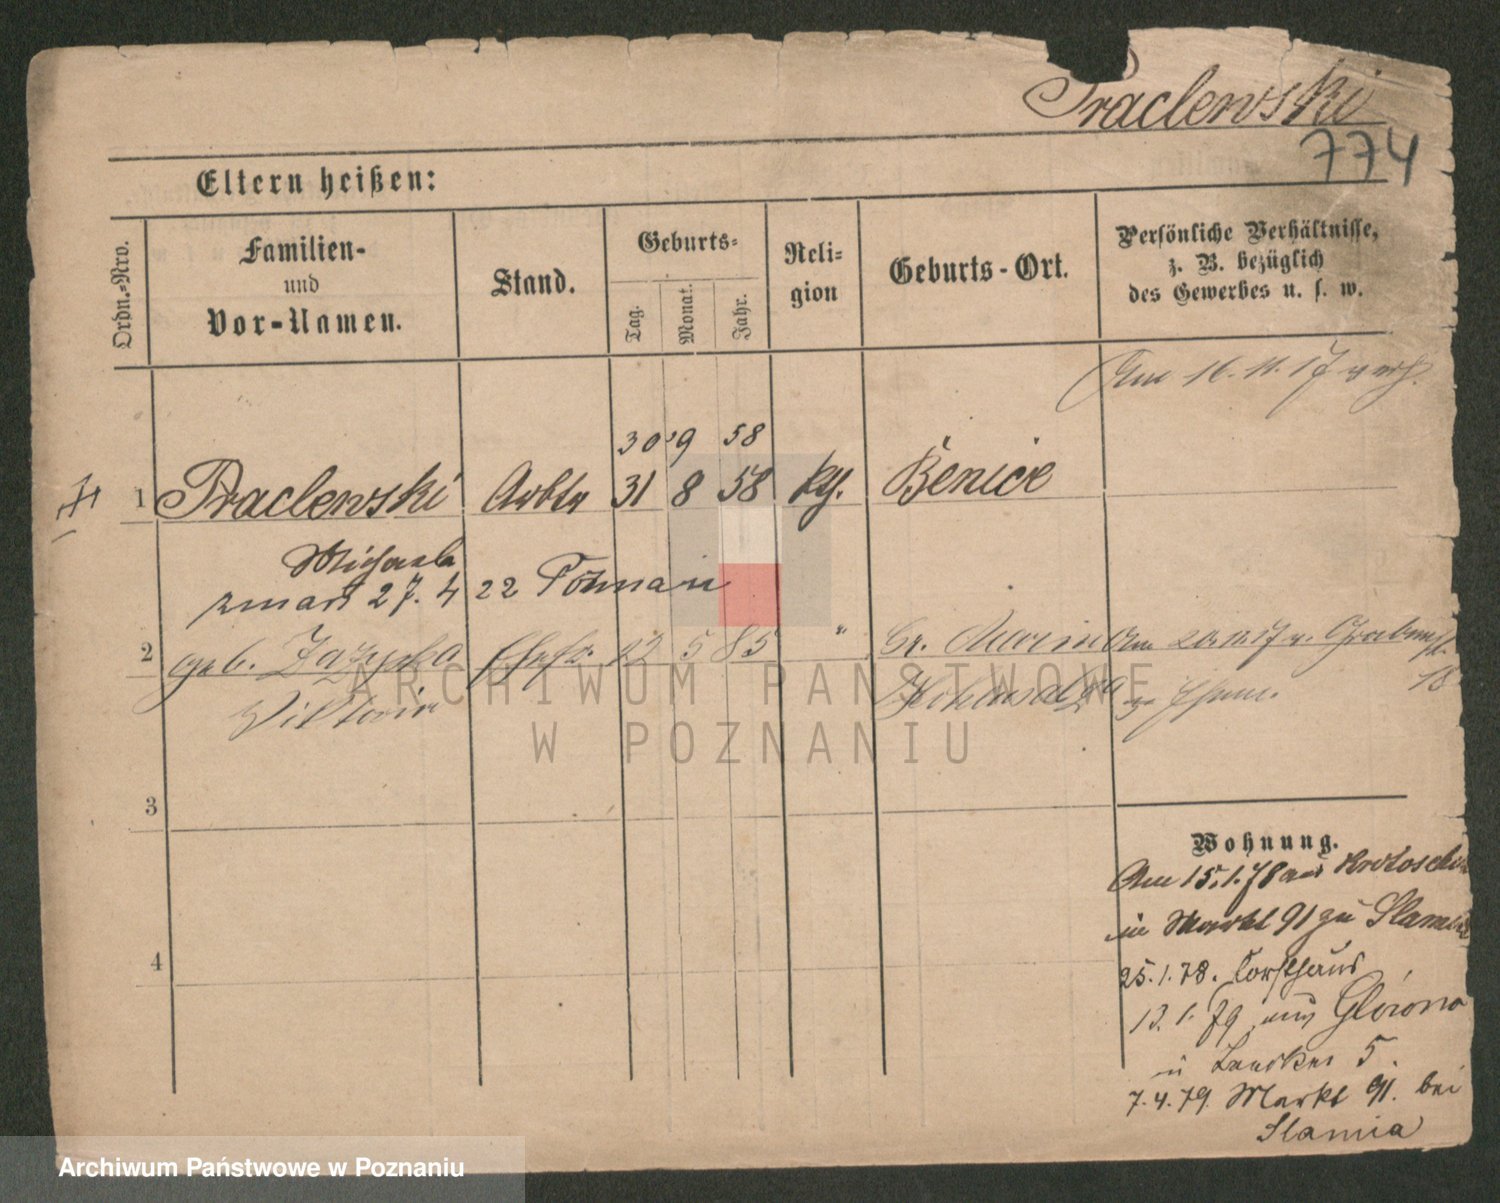 Praclewski
774
Eltern heißen:
Ordn.-Nro.
Familien-
und
Vor-Namen.
Stand.
Geburts-
Tag.
Monat.
Jahr.
Reli-
gion
Geburts-Ort.
Persönliche Verhältnisse,
z. B. bezüglich
des Gewerbes u. s. w.
Am 16. 11. 17
30 9 58
1 Praclewski Arbtr 31 8 58 kth. Benice
Michaela
zmarł 27. 4 22 Poznań
2 geb. Zazycka Ehefr. 12 5 85 "
Viktoria
3
4
Wohnung.
Am 15.1.78 aus Krotoschin
in Markt 91 zu Slamia
25.1.78. Forsthaus
13.1.79 aus Glowno
7.4.79. Markt 91. bei
Slamia
ARCHIWUM PAŃSTWOWE
W POZNANIU
Archiwum Państwowe w Poznaniu